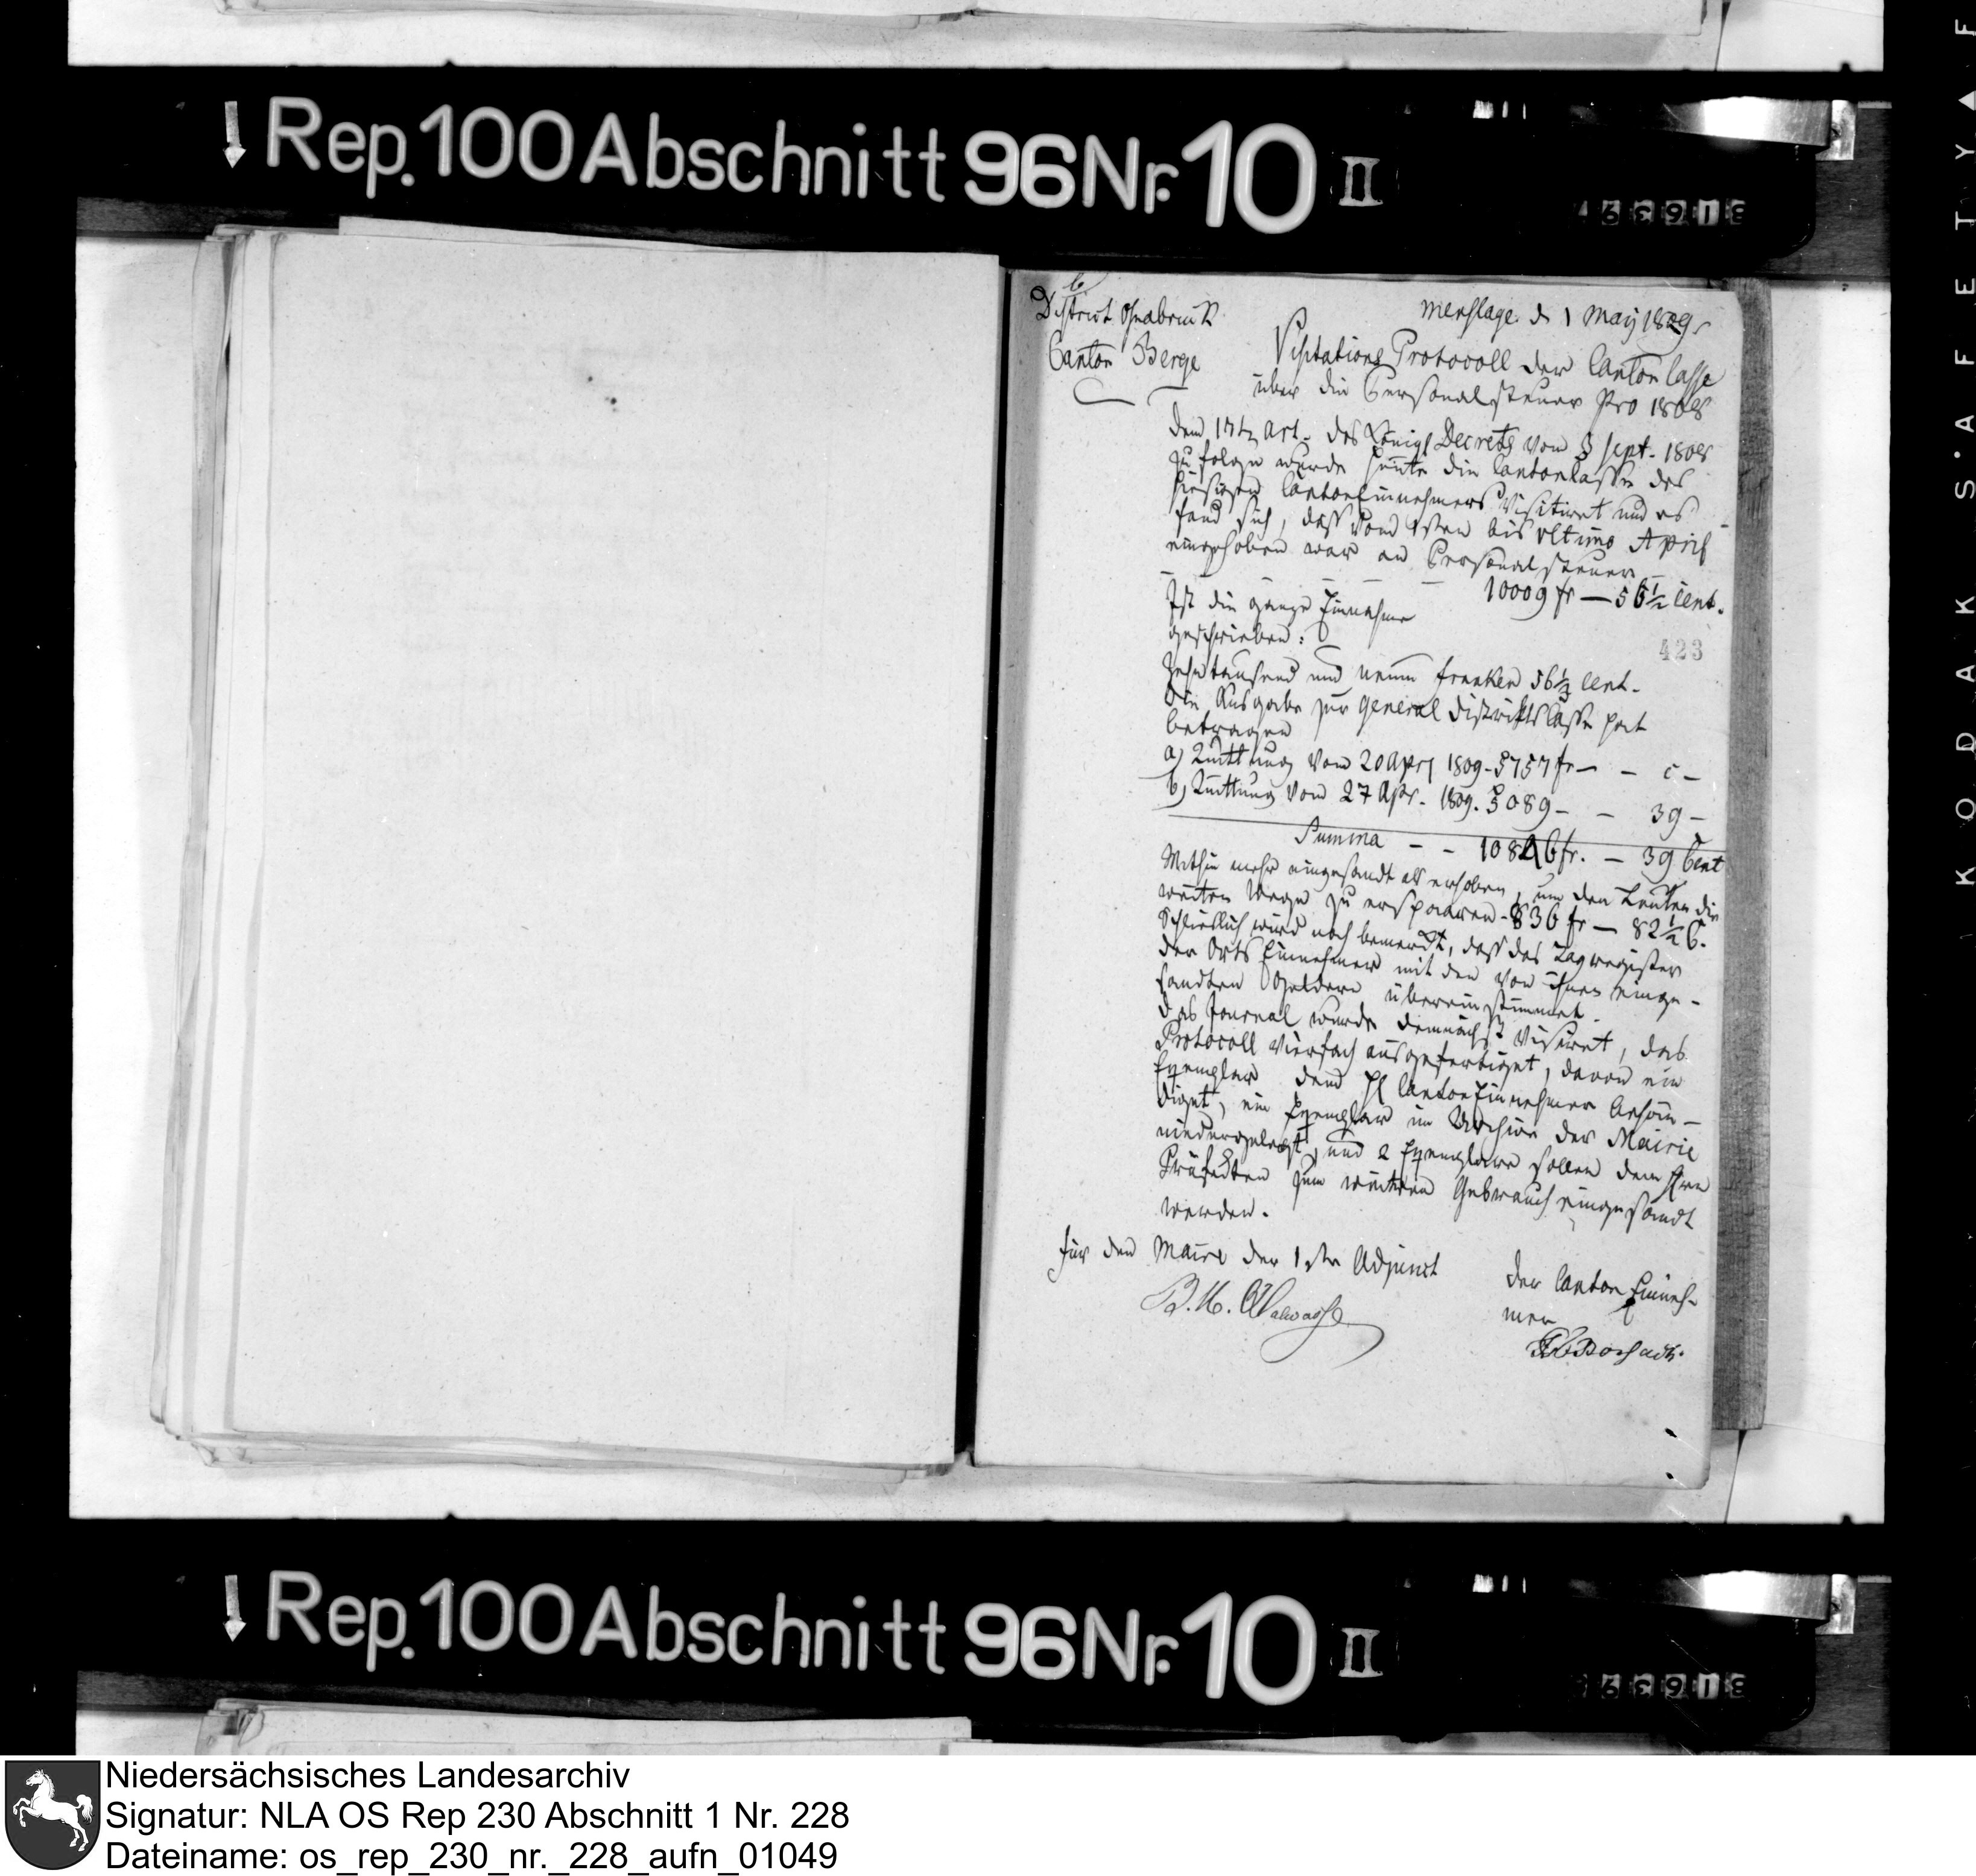 Rep. 100 Abschnitt 96 Nr. 10 II
316394
District Osnabruck
Canton Berge
Menslage d 1 May 1809
Visitations Protocoll der Canton Casse
über die Personalsteuer pro 1808
Dem 17tn Art. des Königl Decrets vom 3 Sept. 1808
zu folge wurde heute die Cantonkasse des
hiesigen Canton Einnehmers visitiret und es
fand sich, dass vom 1sten bis ultimo April
eingehoben war an Personalsteuer
10009 fr — 56 1/2 Cent.
Ist die ganze Einnahme
geschrieben:
423
Zehntausend und neun franken 56 1/2 Cent.
Die Ausgabe zur General Districtskasse hat
betragen
a) Quittung vom 20 Apr 1809 - 5757 fr — - c —
b) Quittung vom 27 Apr. 1809. 5089 — - 39 —
Summa - - 10846 fr. — 39 Cent
Mithin mehr eingesandt als erhoben, um den Leuten die
weiten Wege zu ersparen - 836 fr — 82 1/2 C.
Schlieslich wird noch bemerkt, dass das Tagregister
der Orts Einnehmer mit den von ihnen einge-
sandten Geldern übereinstimmet.
Das Journal wurde demnächst visiret, das
Protocoll vierfach ausgefertiget, davon ein
Exemplar dem H Canton Einnehmer behän-
diget, ein Exemplar im Archiv der Mairie
niedergelegt, und 2 Exemplare sollen dem Hrn
Präfecten zum weiteren Gebrauch eingesandt
werden.
für den Maire der 1ste Adjunct
der Canton Einneh-
mer
Rep. 100 Abschnitt 96 Nr. 10 II
316394
KODAK SAFETY F
Niedersächsisches Landesarchiv
Signatur: NLA OS Rep 230 Abschnitt 1 Nr. 228
Dateiname: os_rep_230_nr._228_aufn_01049